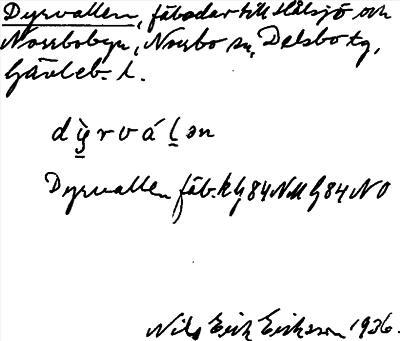 Dyrvallen, fäbodar till Hålsjö och
Norrbobyn, Norrbo sn, Delsbo tg,
Gävleb. l.
dỳ̠rvá l̠ən
Dyrvallen fäb. k G84NM G84NO
Nils Erik Erikson 1936.